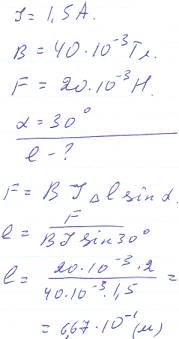 J = 1,5 А.
B = 40·10⁻³ Тл.
F = 20·10⁻³ Н.
α = 30°
l - ?
F = B J Δl sin α.
l = F / (B J sin 30°)
l = (20·10⁻³·2) / (40·10⁻³·1,5) =
= 6,67·10⁻¹ (м)